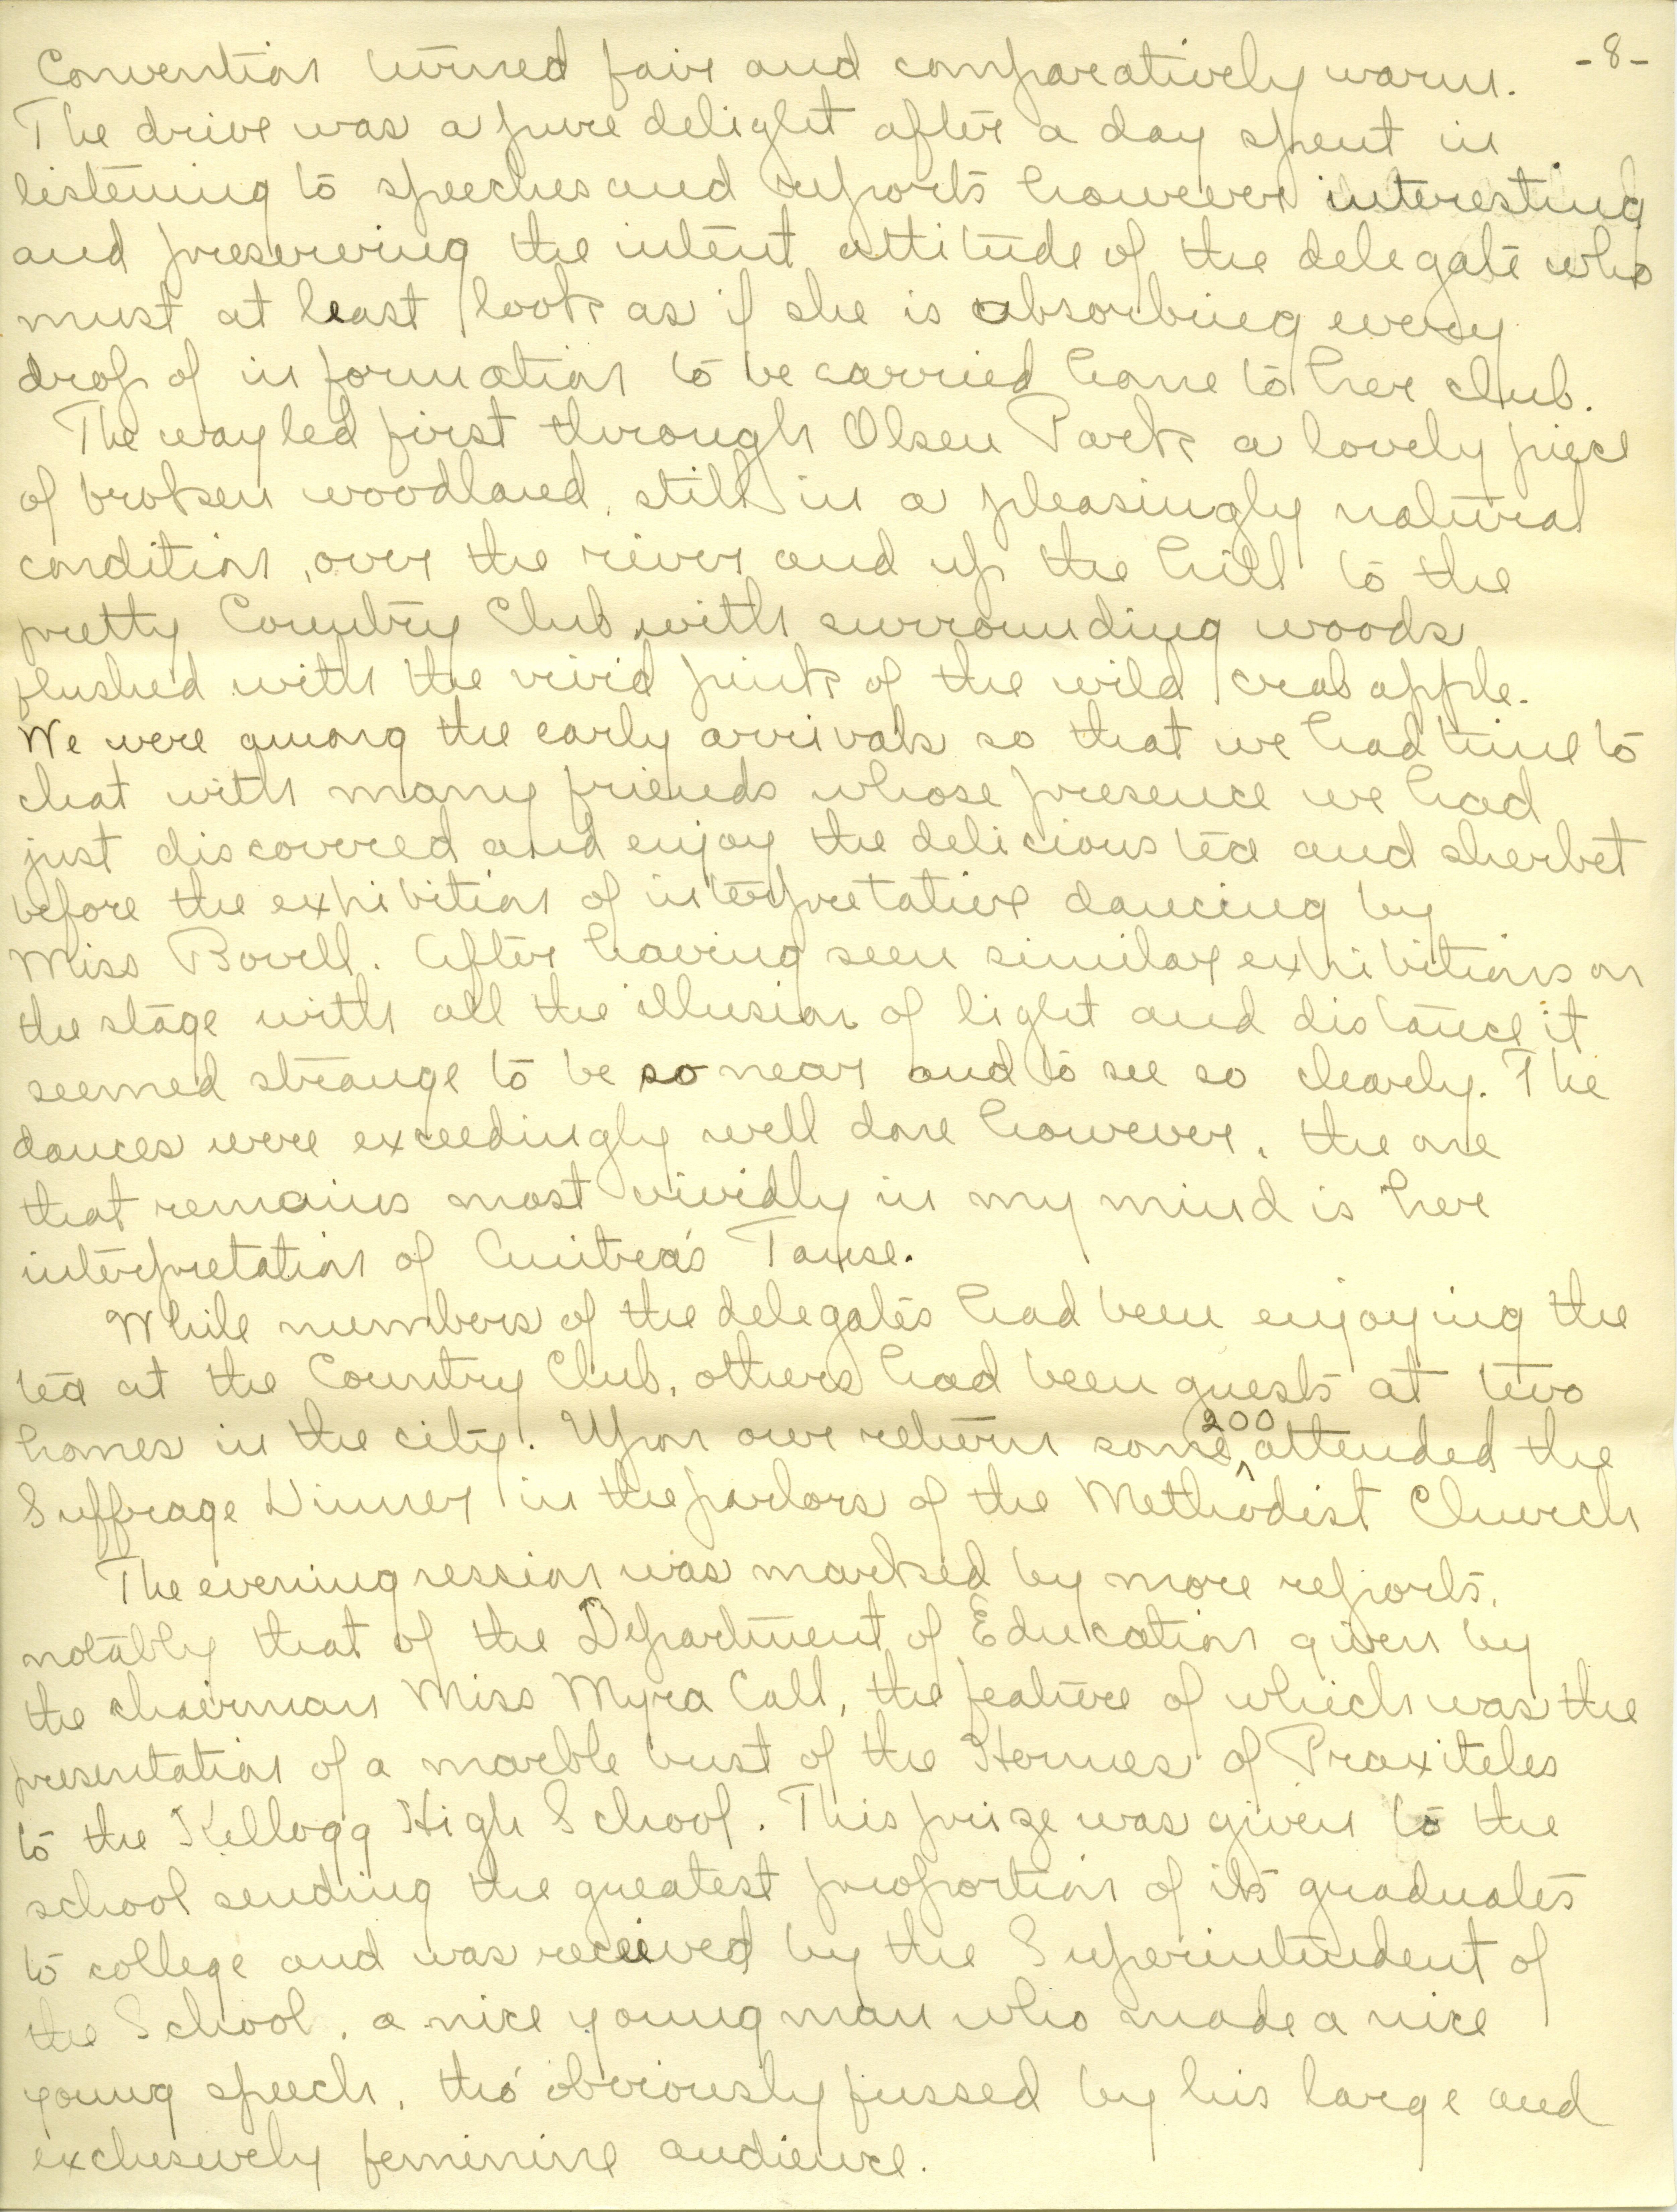 -8-
Convention turned fair and comparatively warm.
The drive was a pure delight after a day spent in
listening to speeches and reports however interesting
and preserving the intent attitude of the delegate who
must at least look as if she is absorbing every
drop of information to be carried home to her club.
The way led first through Olsen Park a lovely piece
of broken woodland, still in a pleasingly natural
condition, over the river and up the hill to the
pretty Country Club, with surrounding woods
flushed with the vivid pink of the wild crab apple.
We were among the early arrivals so that we had time to
chat with many friends whose presence we had
just discovered and enjoy the delicious tea and sherbet
before the exhibition of interpretative dancing by
Miss Bovell. After having seen similar exhibitions on
the stage with all the illusion of light and distance it
seemed strange to be so near and to see so clearly. The
dances were exceedingly well done however, the one
that remains most vividly in my mind is her
interpretation of Anitra's Tanse.
While numbers of the delegates had been enjoying the
tea at the Country Club, others had been guests at two
homes in the city. Upon our return some 200 attended the
Suffrage Dinner in the parlors of the Methodist Church
The evening session was marked by more reports,
notably that of the Department of Education given by
the chairman Miss Myra Call, the feature of which was the
presentation of a marble bust of the Hermes of Praxiteles
to the Kellogg High School. This prize was given to the
school sending the greatest proportion of its graduates
to college and was received by the Superintendent of
the School, a nice young man who made a nice
young speech, tho' obviously fussed by his large and
exclusively feminine audience.